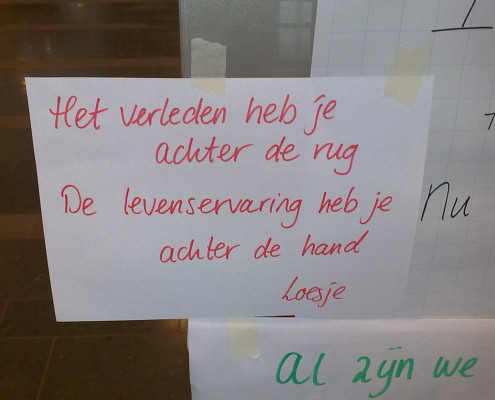 Het verleden heb je
achter de rug
De levenservaring heb je
achter de hand
Loesje
Nu
Al zijn we